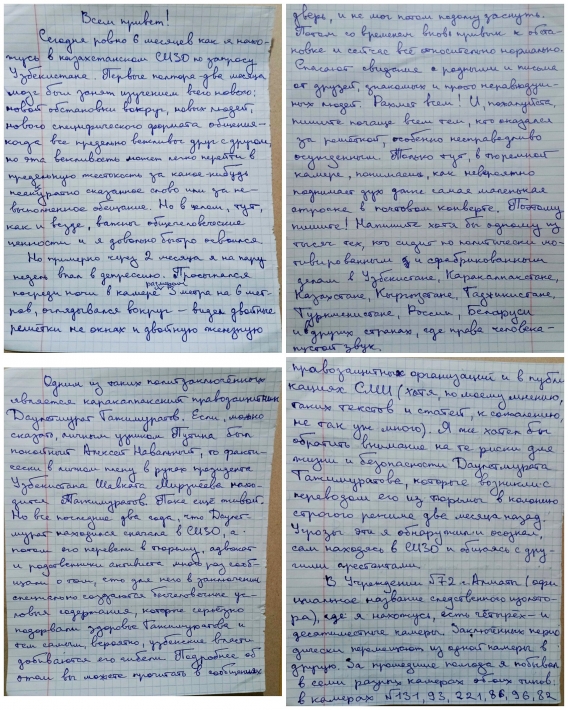 Всем привет!
Сегодня ровно 6 месяцев как я нахо-
жусь в казахстанском СИЗО по запросу
Узбекистана. Первые полтора-два месяца
мозг был занят изучением всего нового:
новой обстановки вокруг, новых людей,
нового специфического формата общения –
когда все предельно вежливы друг с другом,
но эта вежливость может легко перейти в
предельную жестокость за какое-нибудь
неаккуратно сказанное слово или за не-
выполненное обещание. Но в целом, тут,
как и везде, важны общечеловеческие
ценности и я довольно быстро освоился.
Но примерно через 2 месяца я на пару
недель впал в депрессию. Просыпался
посреди ночи в камере размером 3 метра на 6 мет-
ров, оглядывался вокруг – видел двойные
решётки на окнах и двойную железную
дверь, и не мог потом подолгу заснуть.
Потом со временем вновь привык к обста-
новке и сейчас всё относительно нормально.
Спасают свидания с родными и письма
от друзей, знакомых и просто неравнодуш-
ных людей. Рахмет всем! И, пожалуйста,
пишите почаще всем тем, кто оказался
за решёткой, особенно несправедливо
осуждённым. Только тут, в тюремной
камере, понимаешь, как невероятно
поднимает дух даже самая маленькая
строчка в почтовом конверте. Поэтому
пишите! Напишите хотя бы одному из
тысяч тех, кто сидит по политически мо-
тивированным и сфабрикованным
делам в Узбекистане, Каракалпакстане,
Казахстане, Кыргызстане, Таджикистане,
Туркменистане, России, Беларуси
и в других странах, где права человека –
пустой звук.
Одним из таких политзаключённых
является каракалпакский правозащитник
Даулетмурат Тажимуратов. Если, можно
сказать, личным узником Путина был
покойный Алексей Навальный, то факти-
чески в личном плену в руках президента
Узбекистана Шавката Мирзиёева нахо-
дится Тажимуратов. Пока ещё живой.
Но все последние два года, что Даулет-
мурат находился сначала в СИЗО, а
потом его перевели в тюрьму, адвокат
и родственники активиста много раз сооб-
щали о том, что для него в заключении
специально создаются бесчеловечные ус-
ловия содержания, которые серьёзно
подорвали здоровье Тажимуратова и
тем самым, вероятно, узбекские власти
добиваются его гибели. Подробнее об
этом вы можете прочитать в сообщениях
правозащитных организаций и в публи-
кациях СМИ (хотя, по моему мнению,
таких текстов и статей, к сожалению,
не так уж много). Я же хотел бы
обратить внимание на те риски для
жизни и безопасности Даулетмурата
Тажимуратова, которые возникли с
переводом его из тюрьмы в колонию
строгого режима два месяца назад.
Угрозы эти я обнаружил и осознал,
сам находясь в СИЗО и общаясь с дру-
гими арестантами.
В Учреждении №72 г. Алматы (офи-
циальное название следственного изолято-
ра), где я нахожусь, есть четырёх- и
десятиместные камеры. Заключённых перио-
дически перемещают из одной камеры в
другую. За прошедшие полгода я побывал
в семи разных камерах обоих типов:
в камерах №131, 93, 221, 86, 96, 82